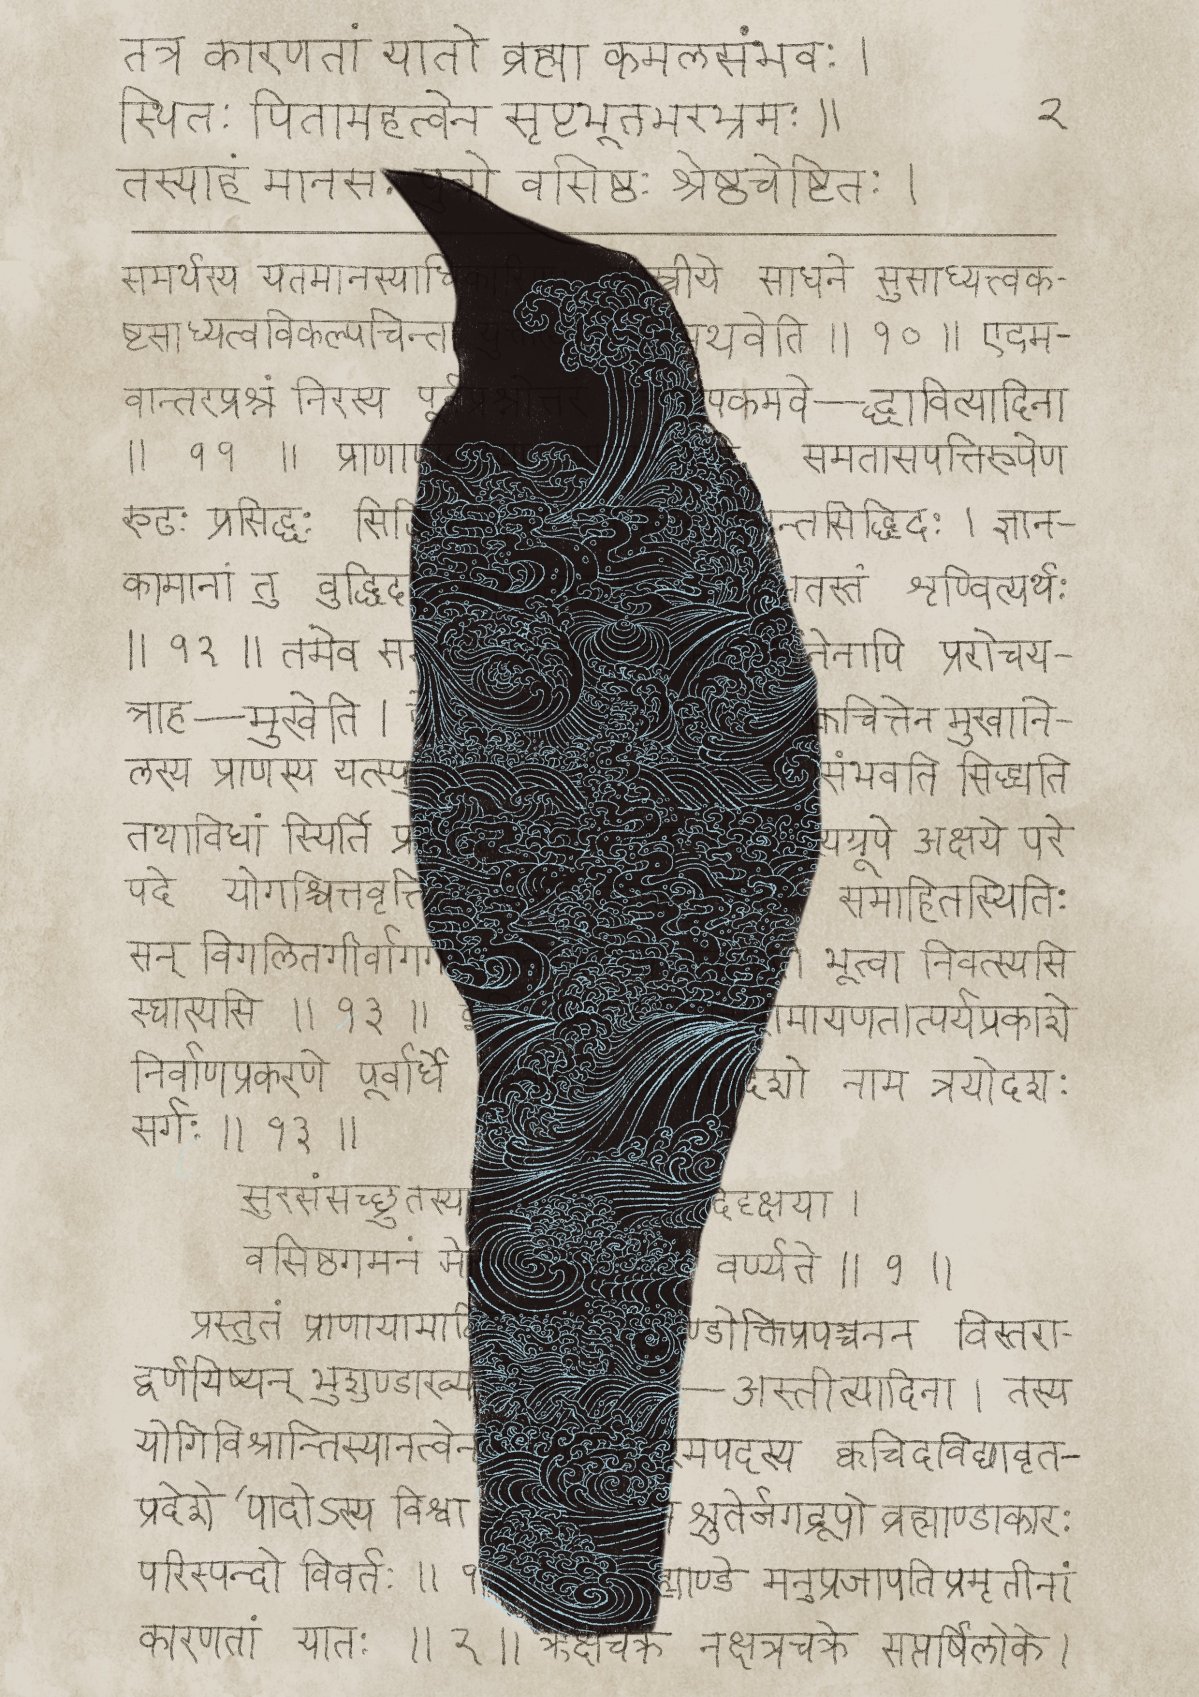 तत्र कारणतां यातो व्रह्मा कमलसंभवः ।
स्थितः पितामहत्वेन सृष्टभूतभरभ्रमः ॥ २
तस्याहं मानसः पुत्रो वसिष्ठः श्रेष्ठचेष्टितः ।
समर्थस्य यतमानस्याधि स्त्रीये साधने सुसाध्यत्त्वक-
ष्टसाध्यत्वविकल्पचिन्ता थवेति ॥ १० ॥ एदम-
वान्तरप्रश्नं निरस्य पूर्वप्रश्नोत्तर पकमवे—द्धावित्यादिना
॥ ११ ॥ समतासपत्तिरूपेण
रुढः प्रसिद्धः न्तसिद्धिदः । ज्ञान-
कामानां तु वुद्धिद तस्तं शृण्वित्यर्थः
॥ १२ ॥ तमेव नेनापि प्ररोचय-
त्राह—मुखेति । कचित्तेन मुखानि-
लस्य प्राणस्य यत्स्फु संभवति सिद्ध्यति
तथाविधां स्यिर्ति अक्षये परे
पदे योगश्चित्तवृत्ति समाहितस्थितिः
सन् विगलितगीर्वागग भूत्वा निवत्स्यसि
स्घास्यसि ॥ १३ ॥ रामायणतात्पर्यप्रकाशे
निर्वाणप्रकरणे पूर्वार्धे देशो नाम त्रयोदशः
सर्गः ॥ १३ ॥
सुरसंसच्छ्रुतस्या दिदृक्षया ।
वसिष्ठगमनं मे वर्ण्यते ॥ १ ॥
प्रस्तुतं प्राणायामादि ण्डोक्तिप्रपञ्चनन विस्तरा-
द्वर्णयिष्यन् भुशुण्डाख्या —अस्तीत्यादिना । तस्य
योगिविश्रान्तिस्यानत्वेन रमपदस्य क्वचिदविद्यावृत-
प्रदेशे ‘पादोऽस्य विश्वा श्रुतेर्जगद्रूपो व्रह्माण्डाकारः
परिस्पन्दो विवर्तः ॥ १ ह्माण्डे मनुप्रजापतिप्रमृतीनां
कारणतां यातः ॥ २ ॥ ऋक्षचक्रे नक्षत्रचक्रे सप्तर्षिलोके ।